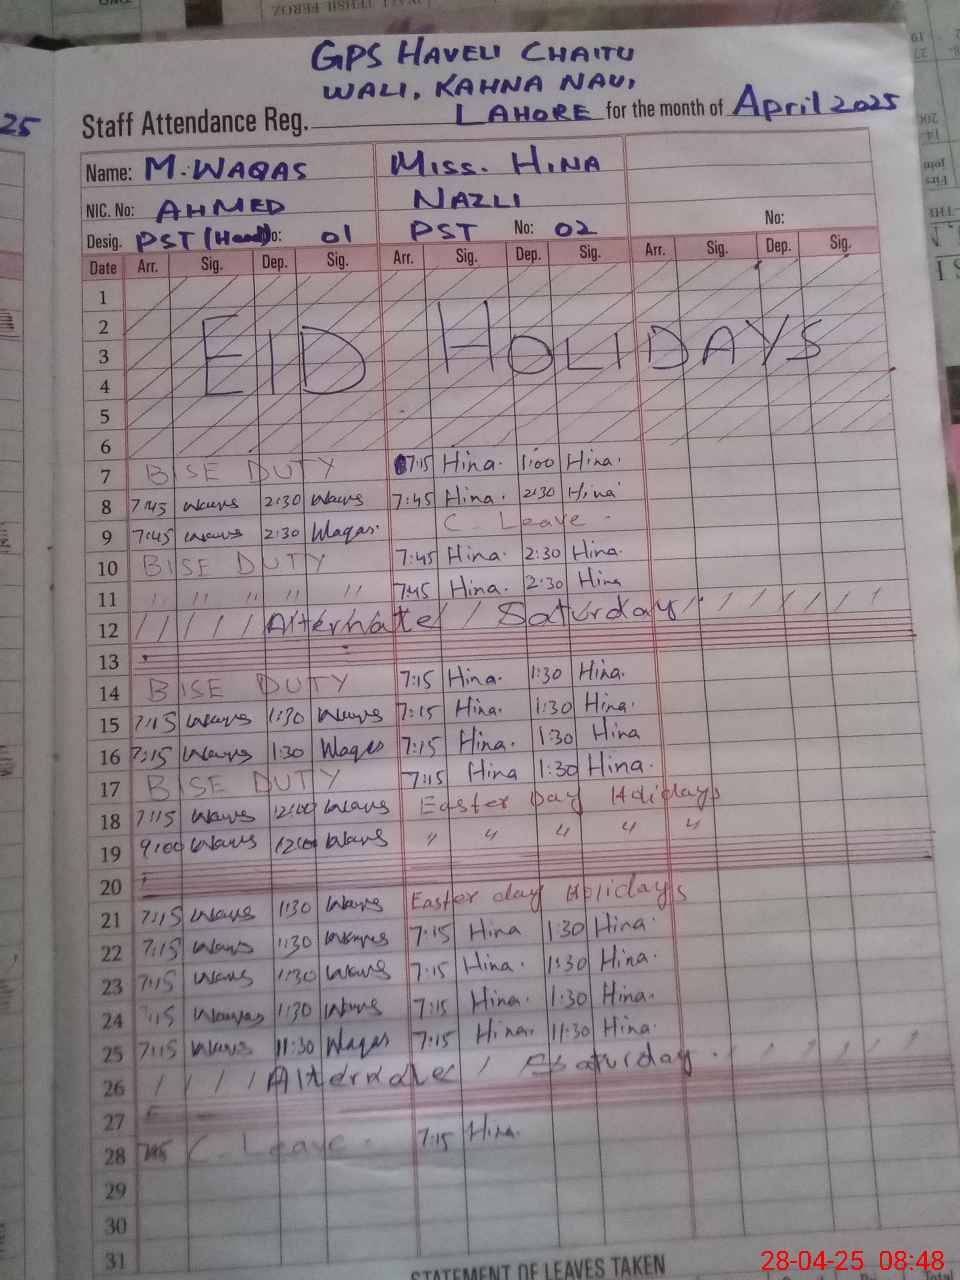 GPS HAVELI CHAITU
WALI, KAHNA NAU,
Staff Attendance Reg. LAHORE for the month of April 2025
25
Name: M. WAQAS MISS. HINA
NIC. No: AHMED NAZLI
Desig. PST (Head) No: 01 PST No: 02 No:
Date Arr. Sig. Dep. Sig. Arr. Sig. Dep. Sig. Arr. Sig. Dep. Sig.
1
2
EID HOLIDAYS
3
4
5
6
7 BISE DUTY 7:15 Hina. 1:00 Hina.
8 7:45 Waqas 2:30 Waqas 7:45 Hina. 2:30 Hina
9 7:45 Waqas 2:30 Waqas. C. Leave
10 BISE DUTY 7:45 Hina. 2:30 Hina.
11 " " " " " 7:45 Hina. 2:30 Hina
12 Alternate Saturday
13
14 BISE DUTY 7:15 Hina. 1:30 Hina.
15 7:15 Waqas 1:30 Waqas 7:15 Hina. 1:30 Hina.
16 7:15 Waqas 1:30 Waqas 7:15 Hina. 1:30 Hina
17 BISE DUTY 7:15 Hina 1:30 Hina.
18 7:15 Waqas 12:00 Waqas Easter Day Holidays
19 9:00 Waqas 12:00 Waqas " " " " "
20
21 7:15 Waqas 1:30 Waqas Easter day Holidays
22 7:15 Waqas 1:30 Waqas 7:15 Hina 1:30 Hina
23 7:15 Waqas 1:30 Waqas 7:15 Hina. 1:30 Hina.
24 7:15 Waqas 1:30 Waqas 7:15 Hina. 1:30 Hina.
25 7:15 Waqas 11:30 Waqas 7:15 Hina. 11:30 Hina.
26 Alternate Saturday.
27
28 C. Leave. 7:15 Hina.
29
30
31
STATEMENT OF LEAVES TAKEN
28-04-25 08:48